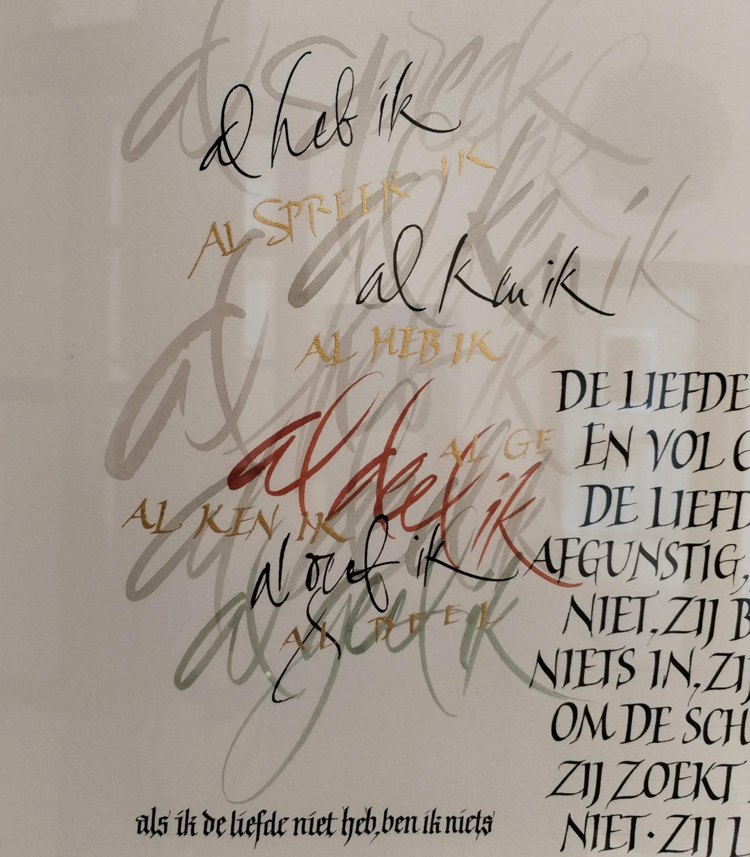 al spreek
al heb ik
AL SPREEK IK
al ken ik
al ken ik
AL HEB IK
al heb ik
al deel ik
AL GE
AL KEN IK
al oef ik
al geef ik
AL DEEL
DE LIEFDE
EN VOL G
DE LIEFD
AFGUNSTIG,
NIET. ZIJ B
NIETS IN. ZIJ
OM DE SCH
ZIJ ZOEKT
NIET · ZIJ L
als ik de liefde niet heb, ben ik niets